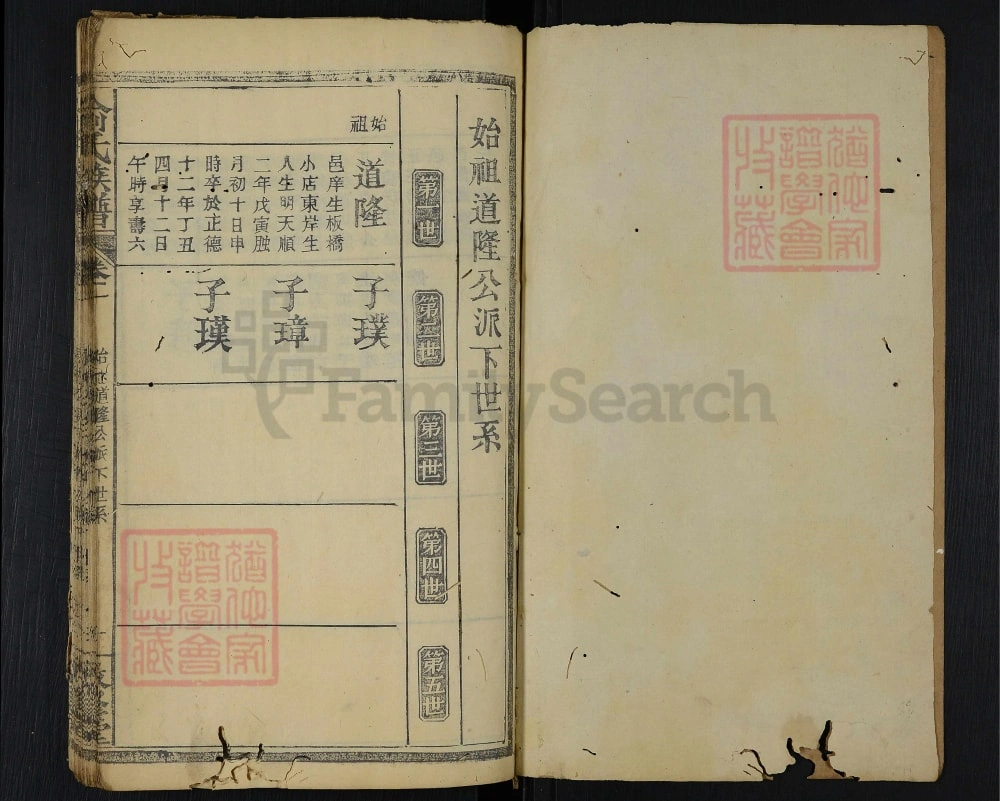 始祖道隆公派下世系
第一世
第二世
第三世
第四世
第五世
始祖
道隆
邑庠生板橋
小店東岸生
人生明天順
二年戊寅
月初十日申
時卒於正德
十二年丁丑
四月十二日
午時享壽六
子璞
子璋
子瑛
氏族譜
卷
始祖道隆公派下世系
譜學會
收藏
譜學會
收藏
FamilySearch